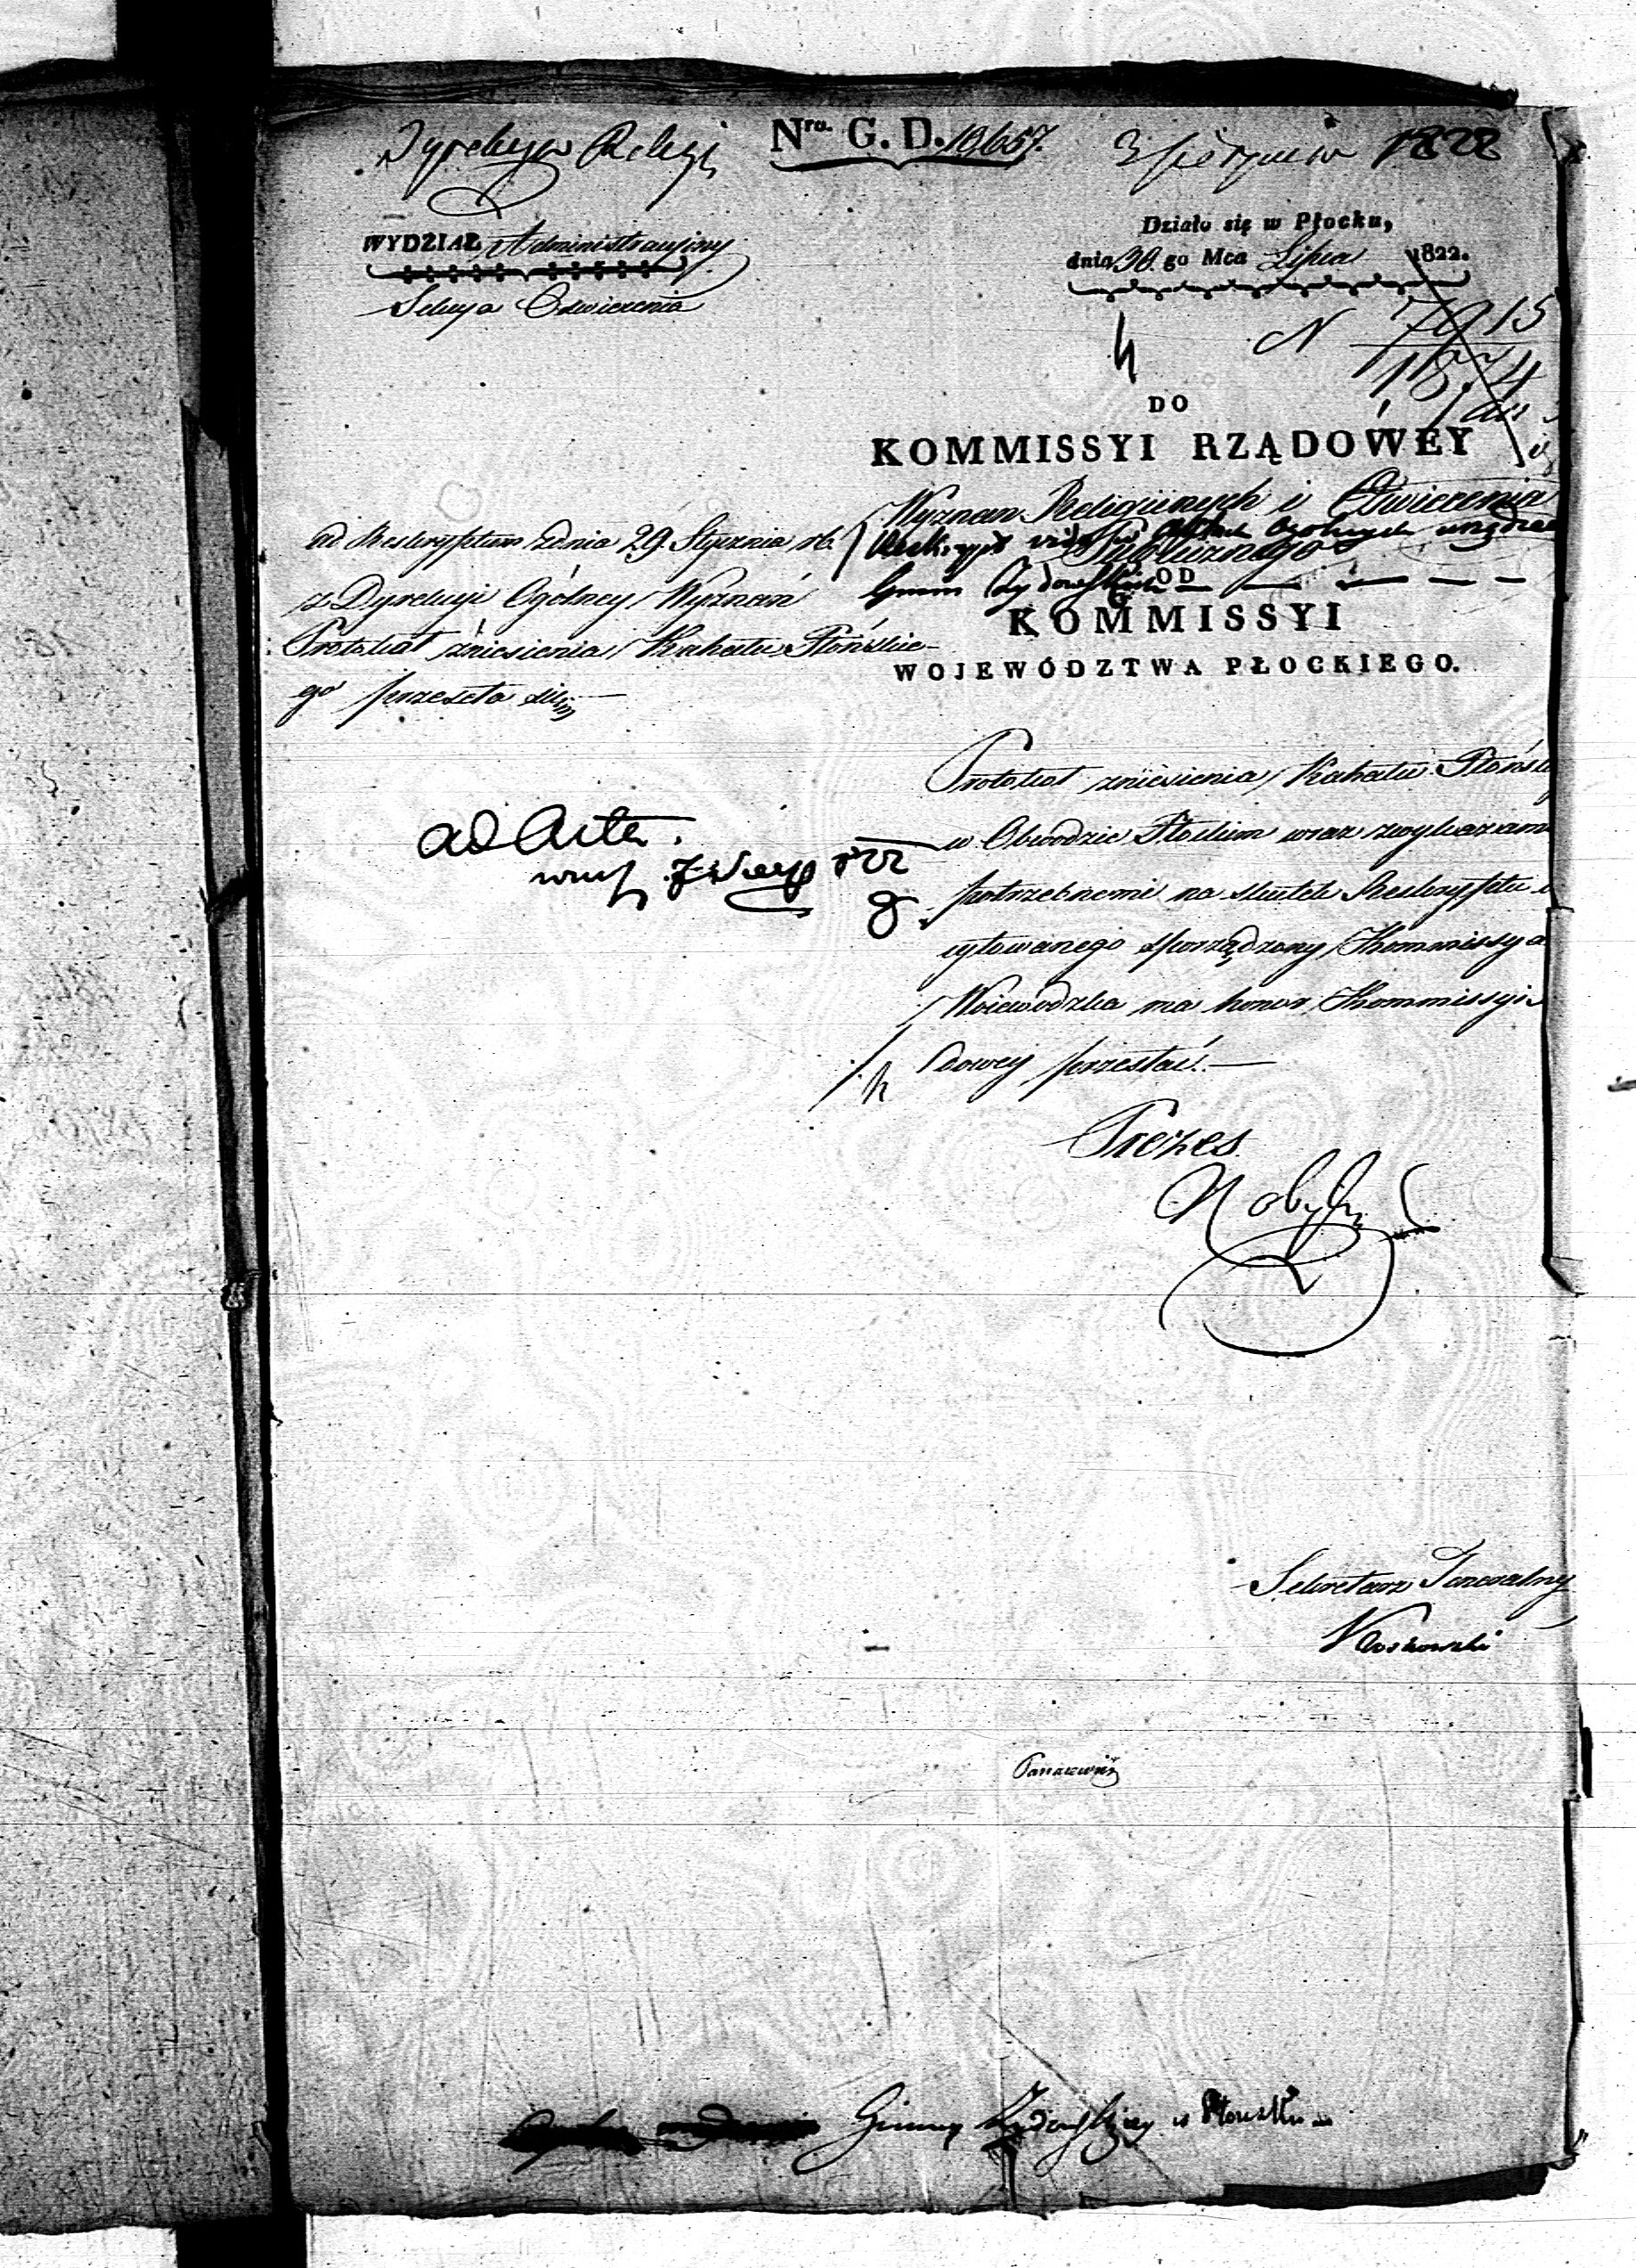 Dyrekcya Religi
Nro. G. D. 18,657.
3 sierpnia 1822
WYDZIAŁ Administracyiny
Sekcya Oświecenia
Działo się w Płocku,
dnia 30 go Mca Lipca 1822.
N 7915
1874
DO
KOMMISSYI RZĄDOWEY
Wyznań Religiinych i Oświecenia
Publicznego
Gmin Żydowskich
OD
KOMMISSYI
WOJEWÓDZTWA PŁOCKIEGO.
ad Reskryptum z dnia 29. Stycznia rb.
z Dyrekcyi Ogólney Wyznań
Protokół zniesienia Kahału Płońskie-
go przeseła się
Protokół zniesienia Kahału Płońsk
w Obwodzie Płockim wraz z wykazam
potrzebnemi na skutek Reskryptu
cytowanego sporządzony Kommissya
Woiewódzka ma honor Kommissyi
dowey przesłać.—
ad Acta.
Prezes
Sekretarz Jeneralny
Gminy Żydowskiey w Płońsku